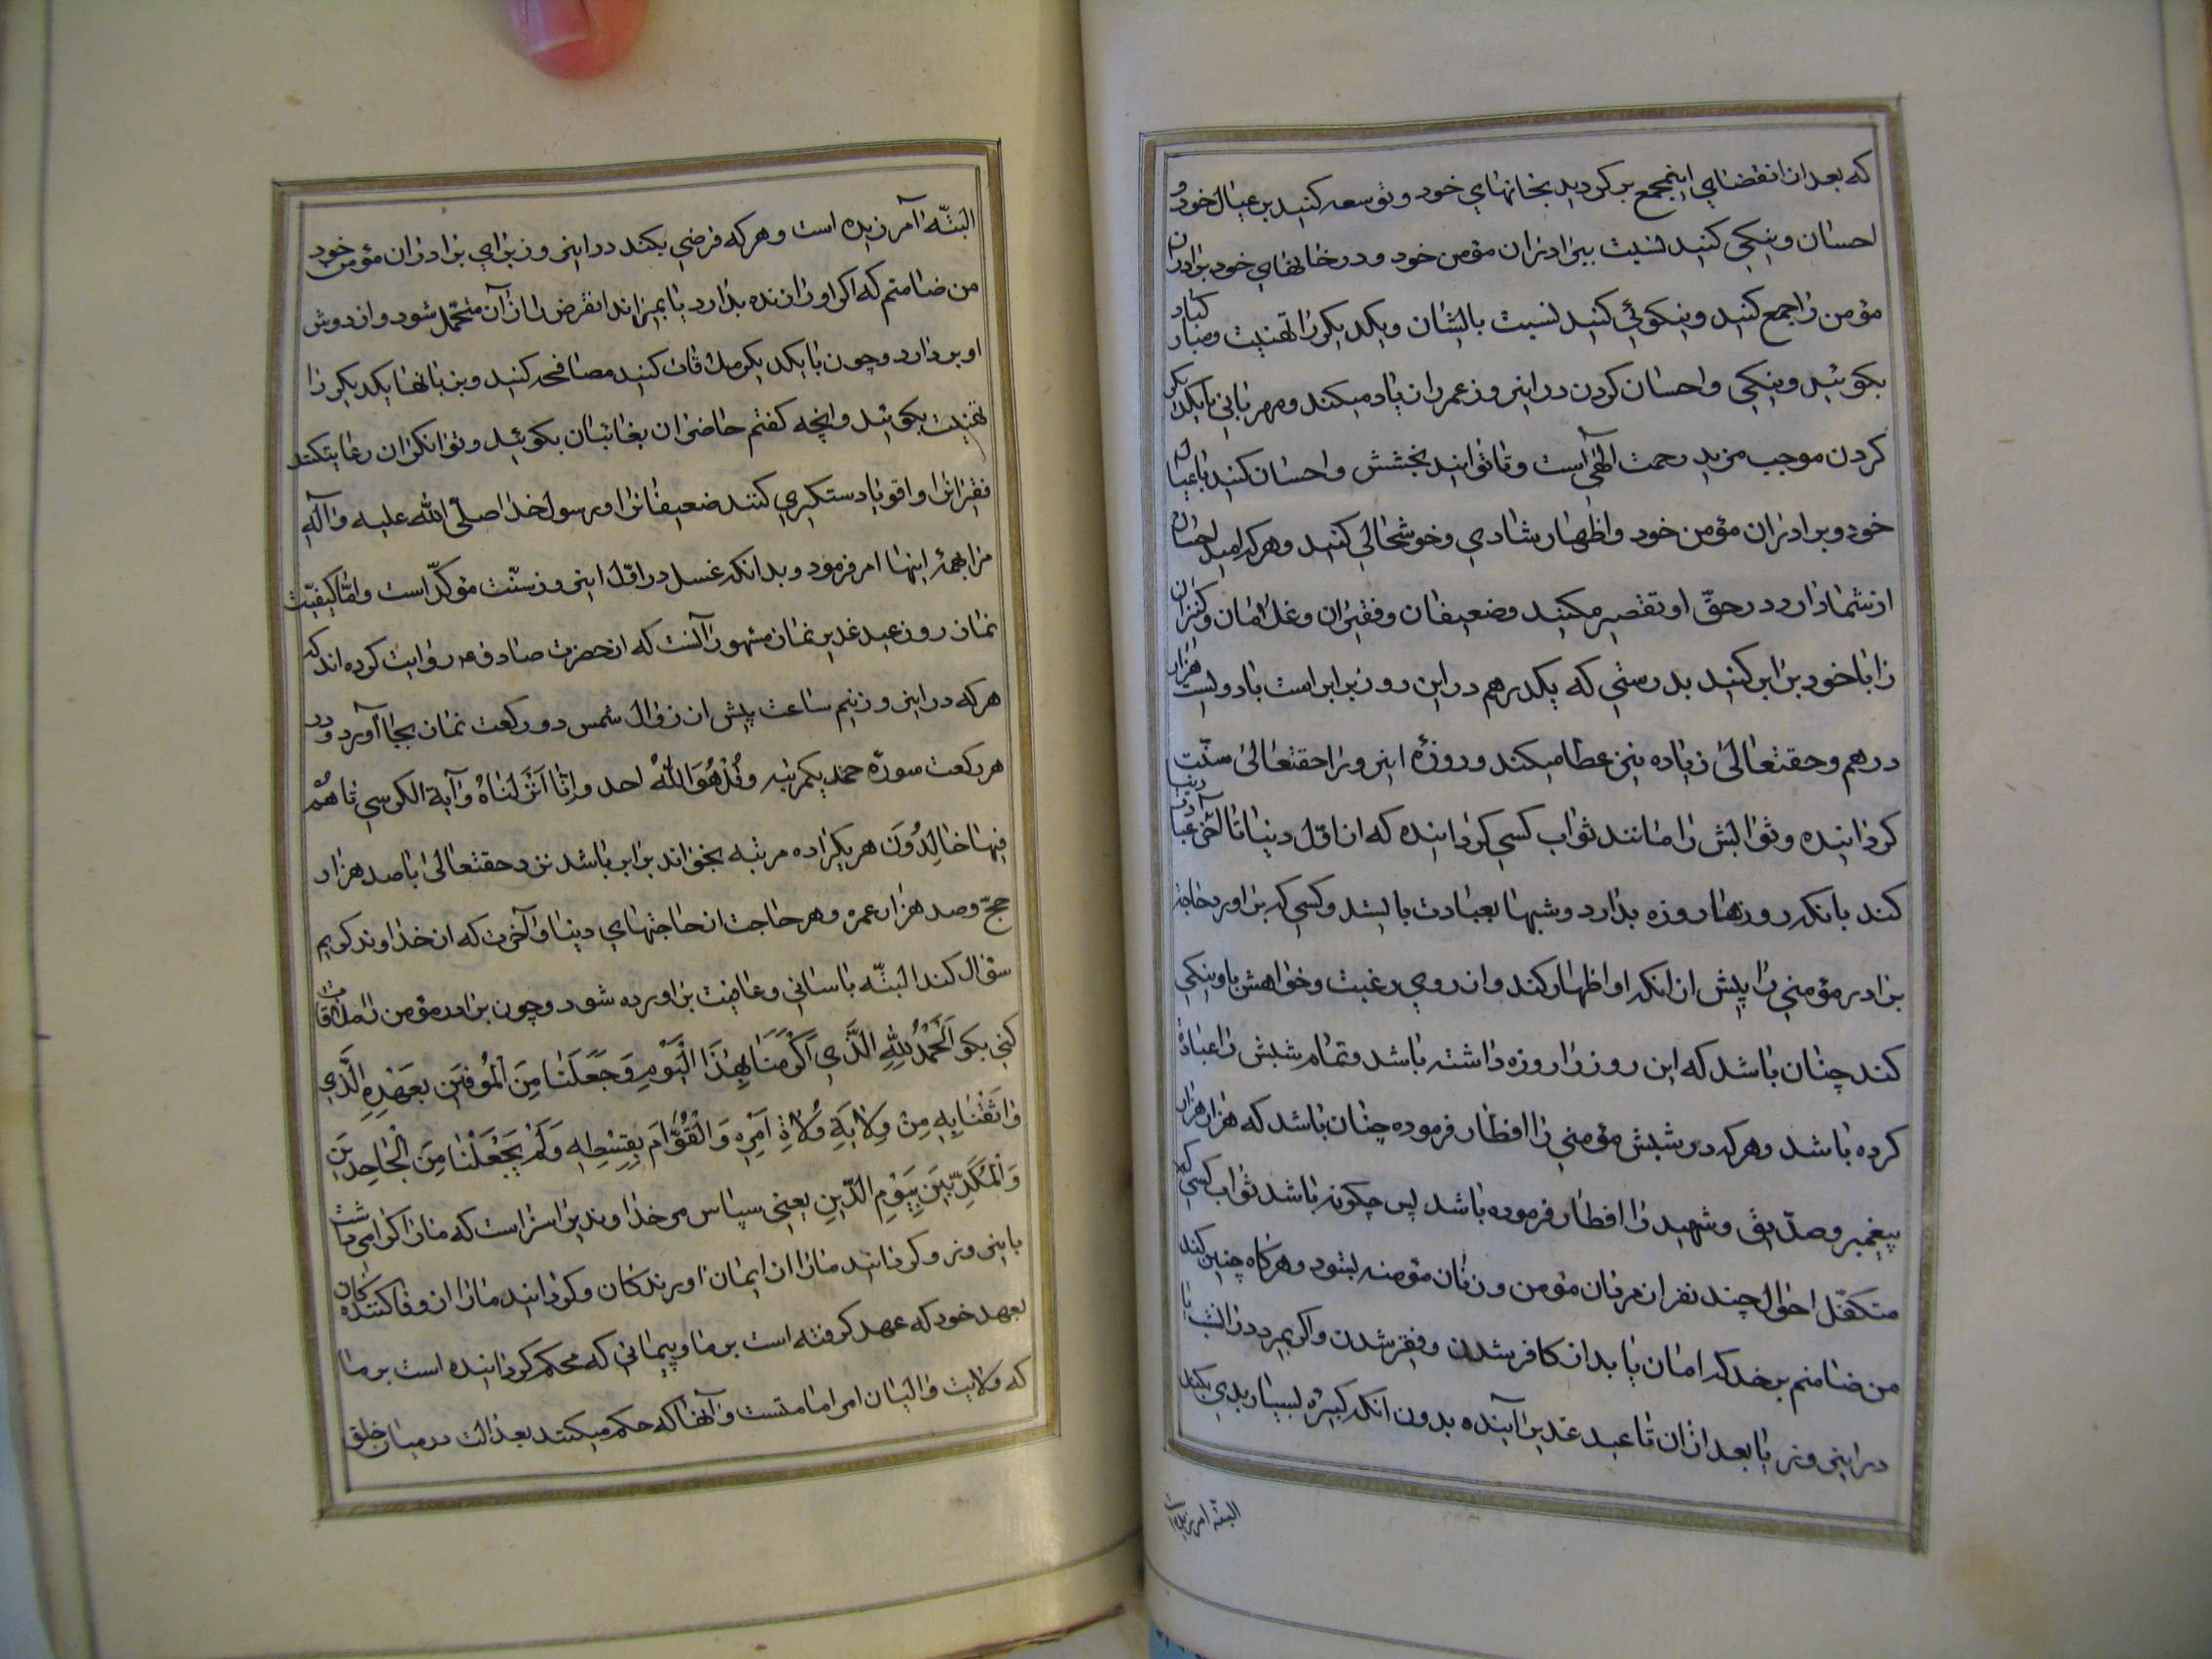 که بعد از انقضای اینمجمع برگردید بخانهای خود و توسعه کنید بر عیال خود و
احسان و نیکی کنید نسبت ببرادران مؤمن خود و در خانهای خود برادران
مؤمن را جمع کنید و نیکوئی کنید نسبت بایشان و یکدیگر را تهنیت و مبارکباد
بگوئید و نیکی و احسان کردن در اینروز عمر را زیاد میکند و مهربانی با یکدیگر
کردن موجب مزید رحمت الهی است و تا توانید بخشش و احسان کنید با عیال
خود و برادران مؤمن خود و اظهار شادی و خوشحالی کنید و هر که امید احسان
از شما دارد در حقّ او تقصیر مکنید و ضعیفان و فقیران و غلامان و کنیزان
را با خود برابر کنید بدرستی که یکدرهم در این روز برابر است با دویست هزار
درهم و حقتعالی زیاده نیز عطا میکند و روزۀ اینروز را حقتعالی سنّت
گردانیده و ثوابش را مانند ثواب کسی گردانیده که از اوّل دنیا تا آخر دنیا عبادت
کند بانکه روزها روزه بدارد و شبها بعبادت بایستد و کسی که براورد حاجت
برادر مؤمنی را پیش از انکه او اظهار کند و از روی رغبت و خواهش باو نیکی
کند چنان باشد که این روز را روزه داشته باشد و تمام شبش را عبادة
کرده باشد و هر که در شبش مؤمنی را افطار فرموده چنان باشد که هزار هزار
پیغمبر و صدّیق و شهید را افطار فرموده باشد پس چگونه باشد ثواب کسی که
متکفّل احوال چند نفر از مردان مؤمن و زنان مؤمنه بشود و هرگاه چنین کند
من ضامنم بر خدا که امان یابد از کافر شدن و فقیر شدن و اگر بمیرد در انشب یا
در اینروز یا بعد از ان تا عید غدیر آینده بدون انکه کبیره بسیار بدی بکند
البته امرزیده است
البتّه آمرزیده است و هر که قرضی بکند در اینروز برای برادران مؤمن خود
من ضامنم که اگر او را زنده بدارد یا بمیراند انقرض را از آن متحمّل شود و از دوش
او بردارد و چون با یکدیگر ملاقات کنید مصافحه کنید و بزبانها یکدیگر را
تهنیت بگوئید و انچه گفتم حاضران بغائبان بگوئید و توانگران رعایت کنند
فقیرانرا و اقویا دستگیری کنند ضعیفانرا و رسولخدا صلّی الله علیه و آله
مرا بهمۀ اینها امر فرمود و بدانکه غسل در اوّل اینروز سنّت مؤکدّ است و امّا کیفیّت
نماز روز عید غدیر نماز مشهور آنست که از حضرت صادق ع روایت کرده اند که
هر که در اینروز نیم ساعت پیش از زوال شمس دو رکعت نماز بجا آورد و در
هر رکعت سورۀ حمد یکمرتبه و قُل هُوَ اللهُ احد و اِنّا اَنْزَلناهُ و آیة الکرسی تا هُمْ
فیها خالِدُونَ هر یکرا ده مرتبه بخواند برابر باشد نزد حقتعالی با صد هزار
حجّ و صد هزار عمره و هر حاجت از حاجتهای دنیا و آخرت که از خداوند کریم
سؤال کند البتّه باسانی و عافیت براورده شود و چون برادر مؤمن را ملاقات
کنی بگو اَلْحَمْدُ لِلّهِ الَّذی اَکْرَمَنا بِهذَا الْیَوْمِ وَ جَعَلَنا مِنَ الْمُوفینَ بِعَهْدِهِ الَّذی
واثَقَنا بِهِ مِنْ وِلایَةِ وُلاةِ اَمْرِهِ وَ الْقُوّامِ بِقِسْطِهِ وَ لَمْ یَجْعَلْنا مِنَ الْجاحِدینَ
وَ الْمُکَذِّبینَ بِیَوْمِ الدّینِ یعنی سپاس مر خداوندیرا سزاست که ما را گرامی داشت
باینروز و گردانید ما را از ایمان اورندگان و گردانید ما را از وفا کنندگان
بعهد خود که عهد گرفته است بر ما و پیمانی که محکم گردانیده است بر ما
که ولایت والیان امر امامتست و آنها که حکم میکنند بعدالت در میان خلق